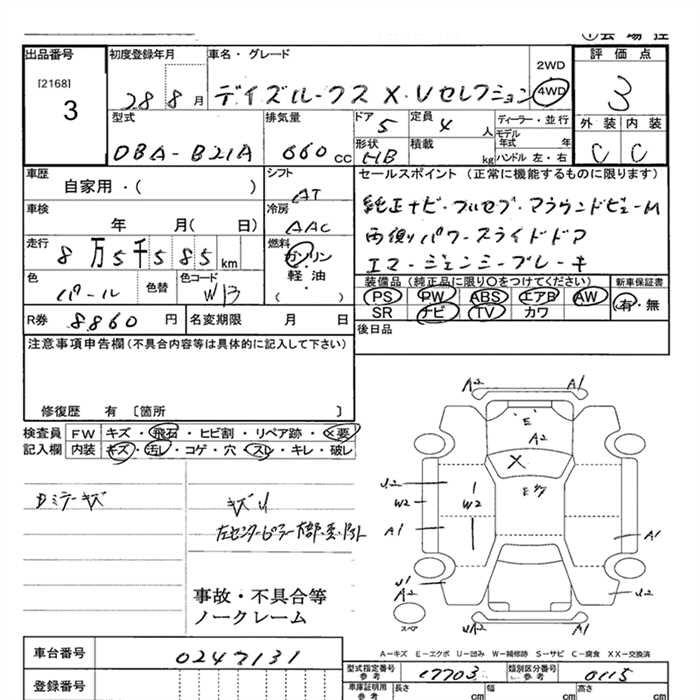 出品番号
[2168]
3
初度登録年月
28 8 月
車名・グレード
デイズルークス X・Vセレクション
2WD
4WD
評価点
3
外装 内装
C C
型式
DBA-B21A
排気量
660 cc
ドア
5
定員
4 人
形状
HB
積載
kg
ディーラー・並行
モデル年式 年
ハンドル 左・右
車歴
自家用・( )
シフト
AT
車検
年 月( 日)
冷房
AAC
走行
8万5千585 km
燃料
ガソリン・軽油
( )
色
パール
色替
色コード
W13
R券 8860 円
名変期限 月 日
セールスポイント(正常に機能するものに限ります)
純正ナビ・フルセグ・アラウンドビューM
両側パワースライドドア
エマージェンシーブレーキ
装備品(純正品に限り○をつけてください)
PS PW ABS エアB AW
SR ナビ TV カワ
新車保証書
有・無
後日品
注意事項申告欄(不具合内容等は具体的に記入して下さい)
修復歴 有 〔箇所 〕
検査員記入欄
FW キズ・飛石・ヒビ割・リペア跡・X要
内装 キズ・汚レ・コゲ・穴・スレ・キレ・破レ
Dミラーキズ
キズU
事故・不具合等
ノークレーム
A2 A1
E
A2
X
U2
W2
W2
A1
A1
U1
A2
U2
UA2 A1
スペア
A-キズ E-エクボ U-凹み W-補修跡 S-サビ C-腐食 XX-交換済
車台番号
0247131
登録番号
型式指定番号
参考
17703
類別区分番号
参考
0115
車庫証明用
参考
長さ cm
幅 cm
高さ cm